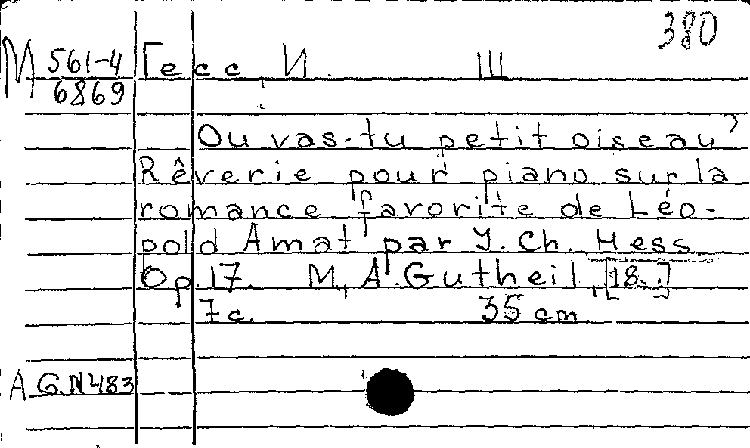 380
М 561-4 Гесс, И. Ш
6869
Ou vas-tu petit oiseau?
Rêverie pour piano sur la
romance favorite de Léo-
pold Amat par J. Ch. Hess
Op. 17. M., A. Gutheil, [18..]
7 с. 35 cm
A.G.N483